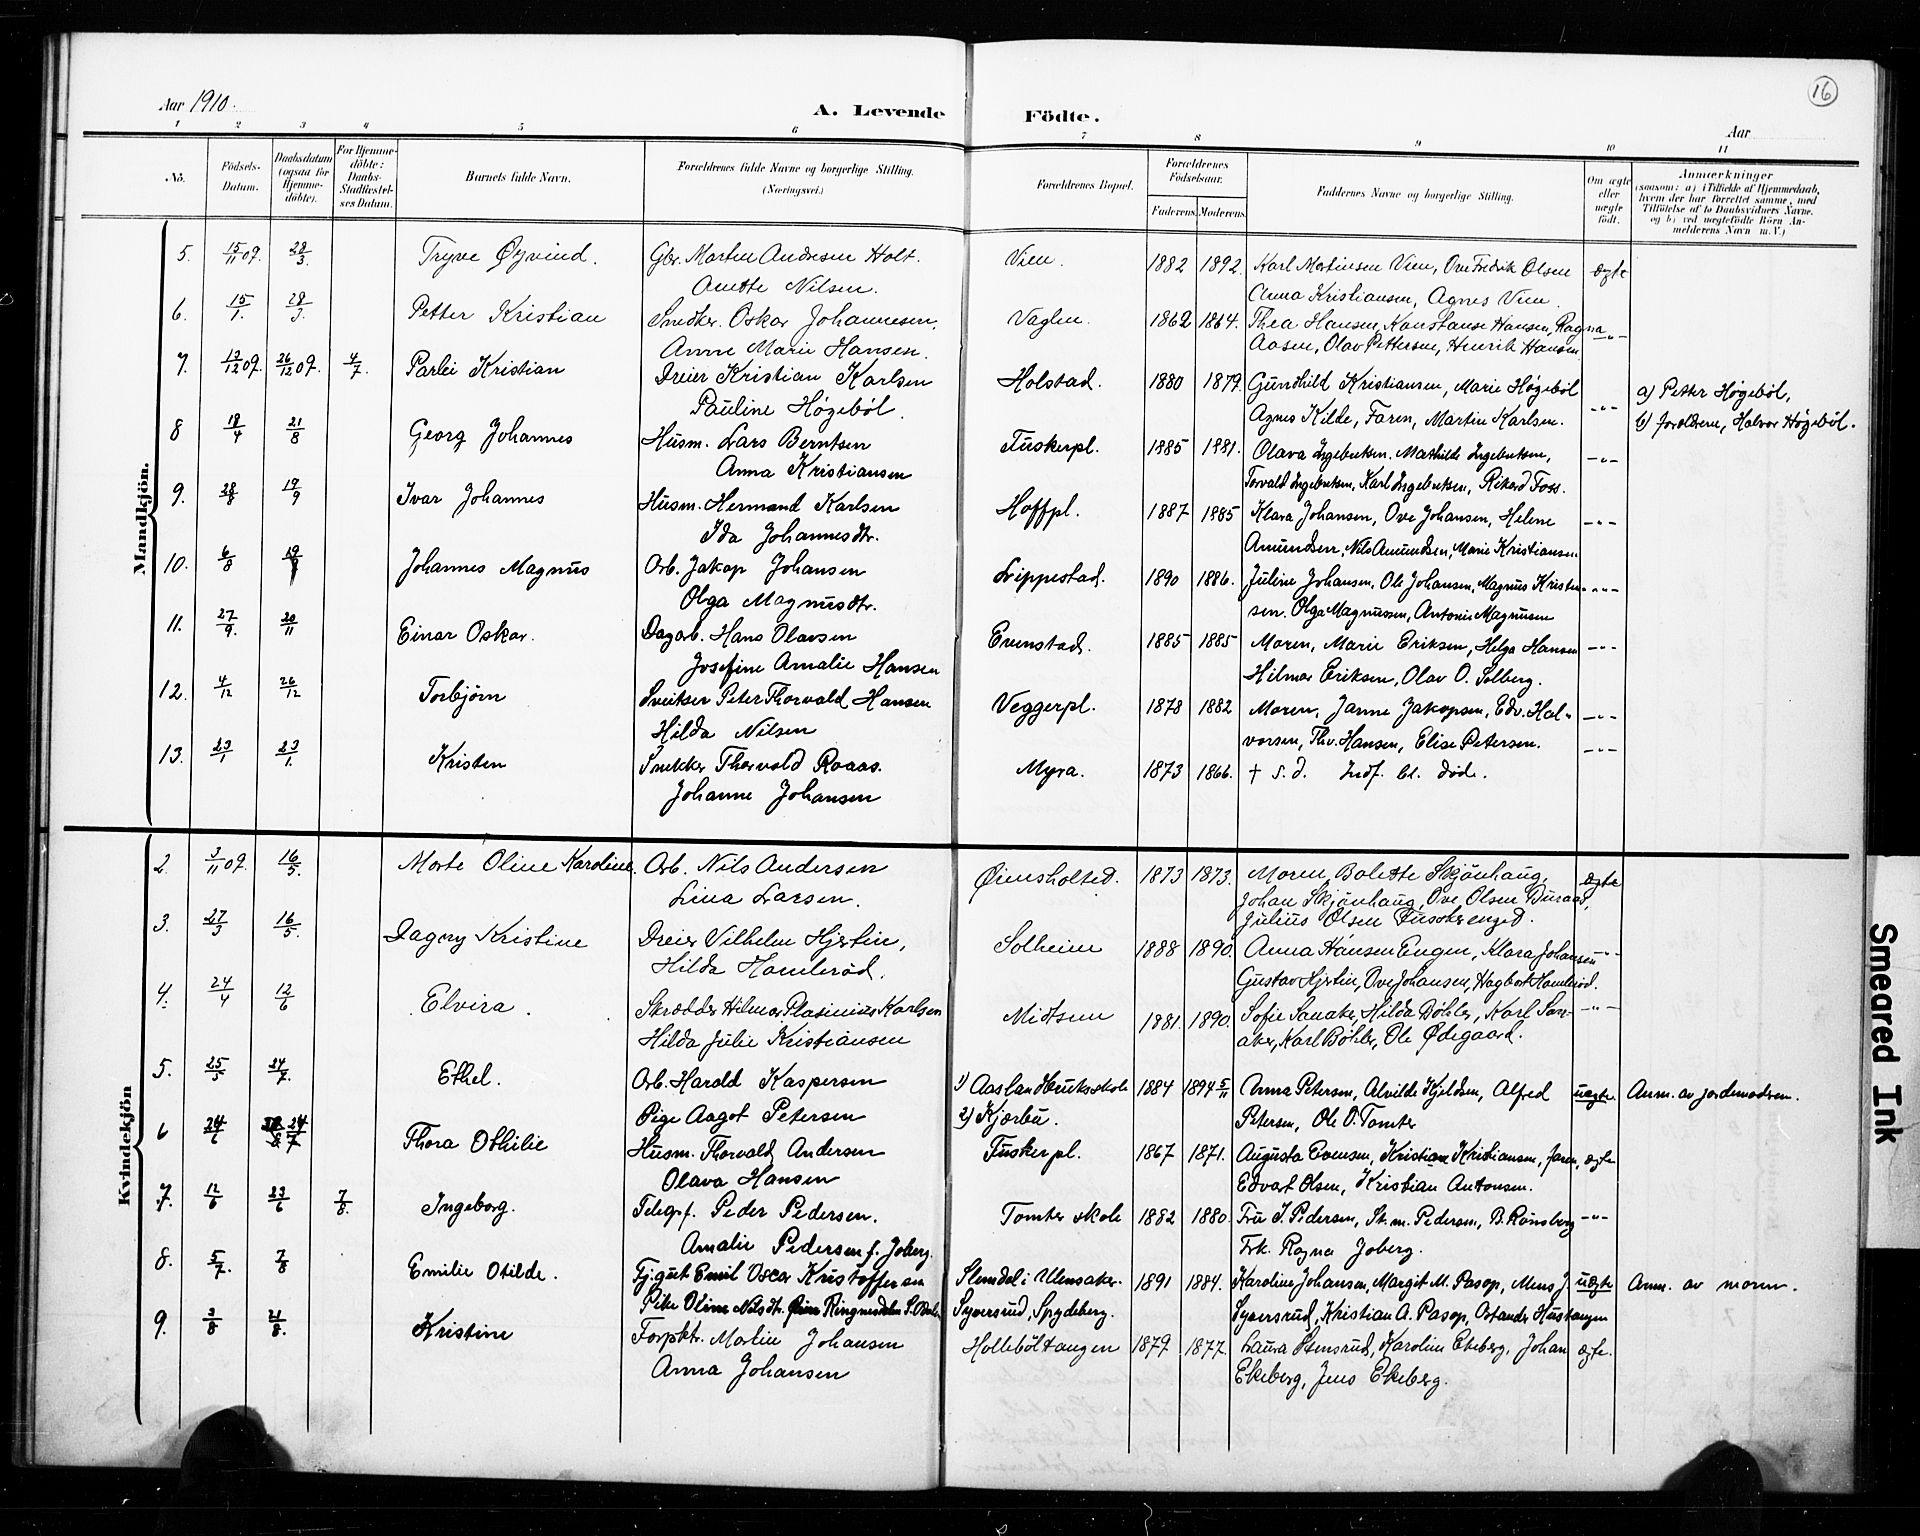 Aar 1910.
A. Levende Födte.
Aar
16
1 2 3 4 5 6 7 8 9 10 11
No.
Födsels-Datum.
Daabsdatum (ogsaa for Hjemmedöbte).
For Hjemmedöbte: Daabs-Stadfæstelses Datum.
Barnets fulde Navn.
Forældrenes fulde Navne og borgerlige Stilling. (Næringsvei.)
Forældrenes Bopæl.
Forældrenes Födselsaar.
Faderens. Moderens.
Faddernes Navne og borgerlige Stilling.
Om ægte eller uægte födt.
Anmærkninger
(saasom: a) i Tilfælde af Hjemmedaab, hvem der har forrettet samme, med Tilföielse af to Daabsvidners Navne, og b) ved uægtefödte Börn Anmelderens Navn m. V.)
Mandkjön.
5. 15/11 09. 28/3 Tryve Øyvind. Gbr. Martin Andresen Holt. Vien. 1882 1892. Karl Martinsen Vien, Ove Fredrik Olsen ægte
Anette Nilsen. Anna Kristiansen, Agnes Vien.
6. 15/1. 28/3. Petter Kristian Snedker. Oskar Johannesen. Vaglen. 1862 1864. Thea Hansen, Konstanse Hansen, Ragna -"-
Anne Marie Hansen. Aasen, Olav Pettersen, Henrik Hansen
7. 13/12 09. 26/12 09. 4/7. Parlei Kristian Dreier Kristian Karlsen Holstad. 1880 1879. Gunhild Kristiansen, Marie Høgeböl -"- a) Petter Høgeböl,
Pauline Høgeböl. Agnes Kilde, Faren, Martin Karlsen. b) foreldrene, Halvor Høgeböl.
8 18/4 21/8 Georg Johannes Husm. Lars Berntsen Fuskerpl. 1885 1881. Olava Ingebretsen. Mathilde Ingebretsen, -"-
Anna Kristiansen Torvald Ingebretsen, Karl Ingebretsen, Rikard Foss.
9. 28/8 19/9 Ivar Johannes Husm. Hermand Karlsen Hoffpl. 1887 1885 Klara Johansen, Ove Johansen, Helene -"-
Ida Johannesdtr. Amundsen, Nils Amundsen, Marie Kristiansen.
10. 6/8 19/8 Johannes Magnus Arb. Jakop Johansen Lippestad. 1890 1886. Juline Johansen, Ole Johansen, Magnus Kristen- -"-
Olga Magnusdtr. sen. Olga Magnussen, Antonie Magnusen
11. 27/9. 20/11 Einar Oskar. Dagarb. Hans Olavsen Evenstad. 1885 1885 Moren, Marie Eriksen, Helga Hansen -"-
Josefine Amalie Hansen Hilmar Eriksen, Olav O. Solberg.
12. 4/12 26/12 Torbjørn Sveitser Peter Thorvald Hansen Veggerpl. 1878 1882 Moren, Janne Jakopsen, Edv. Hal- -"-
Hilda Nilsen vorsen, Thv. Hansen, Elise Petersen.
13. 23/1 23/1. Kristen Snekker Thorvald Roaas. Myra. 1873 1866. † s. d. Indf. bl. døde. -"-
Johanne Johansen
Kvindekjön
2. 3/11 09. 16/5. Marte Oline Karoline. Arb. Nils Andersen Øiensholted. 1873 1873. Moren, Bolette Skjönhaug, ægte
Lina Larsen. Johan Skjönhaug, Ove Olsen Duraas,
Julius Olsen Fuskerenged.
3. 27/3 16/5. Dagny Kristine Dreier Vilhelm Hjertin, Solheim 1888 1890. Anna Hansen Engen, Klara Johansen -"-
Hilda Hamleröd. Gustav Hjertin, Ove Johansen, Hagbart Hamleröd.
4. 24/4 12/6 Elvira. Skrædder Hilmar Plasinius Karlsen Midtsem 1881. 1890. Sofie Sanaker, Hilda Böhler, Karl San- -"-
Hilda Julie Kristiansen aker, Karl Böhler, Ole Ødegaard.
5. 25/5 24/7. Ethel. Arb. Harald Kaspersen 1) Aasland Bruksskole 1884 1894 5/11 Anna Petersen, Alvilde Kjeldsen, Alfred uægte. Anm. av jordemoderen.
Pige Aagot Petersen 2) Kjærbu. Petersen, Ole O. Tomter
6 24/6 24/7 Thora Othilie Husm. Thorvald Andersen Fuskerpl. 1867 1871. Augusta Evensen, Kristiane Kristiansen, faren, ægte
Olava Hansen Edvart Olsen, Kristian Antonsen.
7. 12/6 23/6 7/8. Ingeborg. Telegrf. Peder Pedersen. Tomter skole 1882 1880. Fru I. Pedersen, St. m. Pedersen, B. Rönsberg -"-
Amalie Pedersen f. Joberg. Frk. Ragna Joberg.
8. 5/7. 7/8 Emilie Otilde. Tj.gut Emil Oscar Kristoffersen Slemdal i Ulensaker. 1891 1884. Karoline Johansen, Margit M. Pasop, Mens J. uægte Anm. av moren.
Pike Oline Nilsdtr. Ringnesdalen S. Odalen Syversrud, Spydeberg. Syversrud, Kristian A. Pasop, Ostander Hustangen
9. 3/8 21/8. Kristine Forpkt. Martin Johansen Holleböltangen 1879 1877. Laura Stensrud, Karoline Ekeberg, Johan ægte.
Anna Johansen Ekeberg, Jens Ekeberg.
Smeared Ink